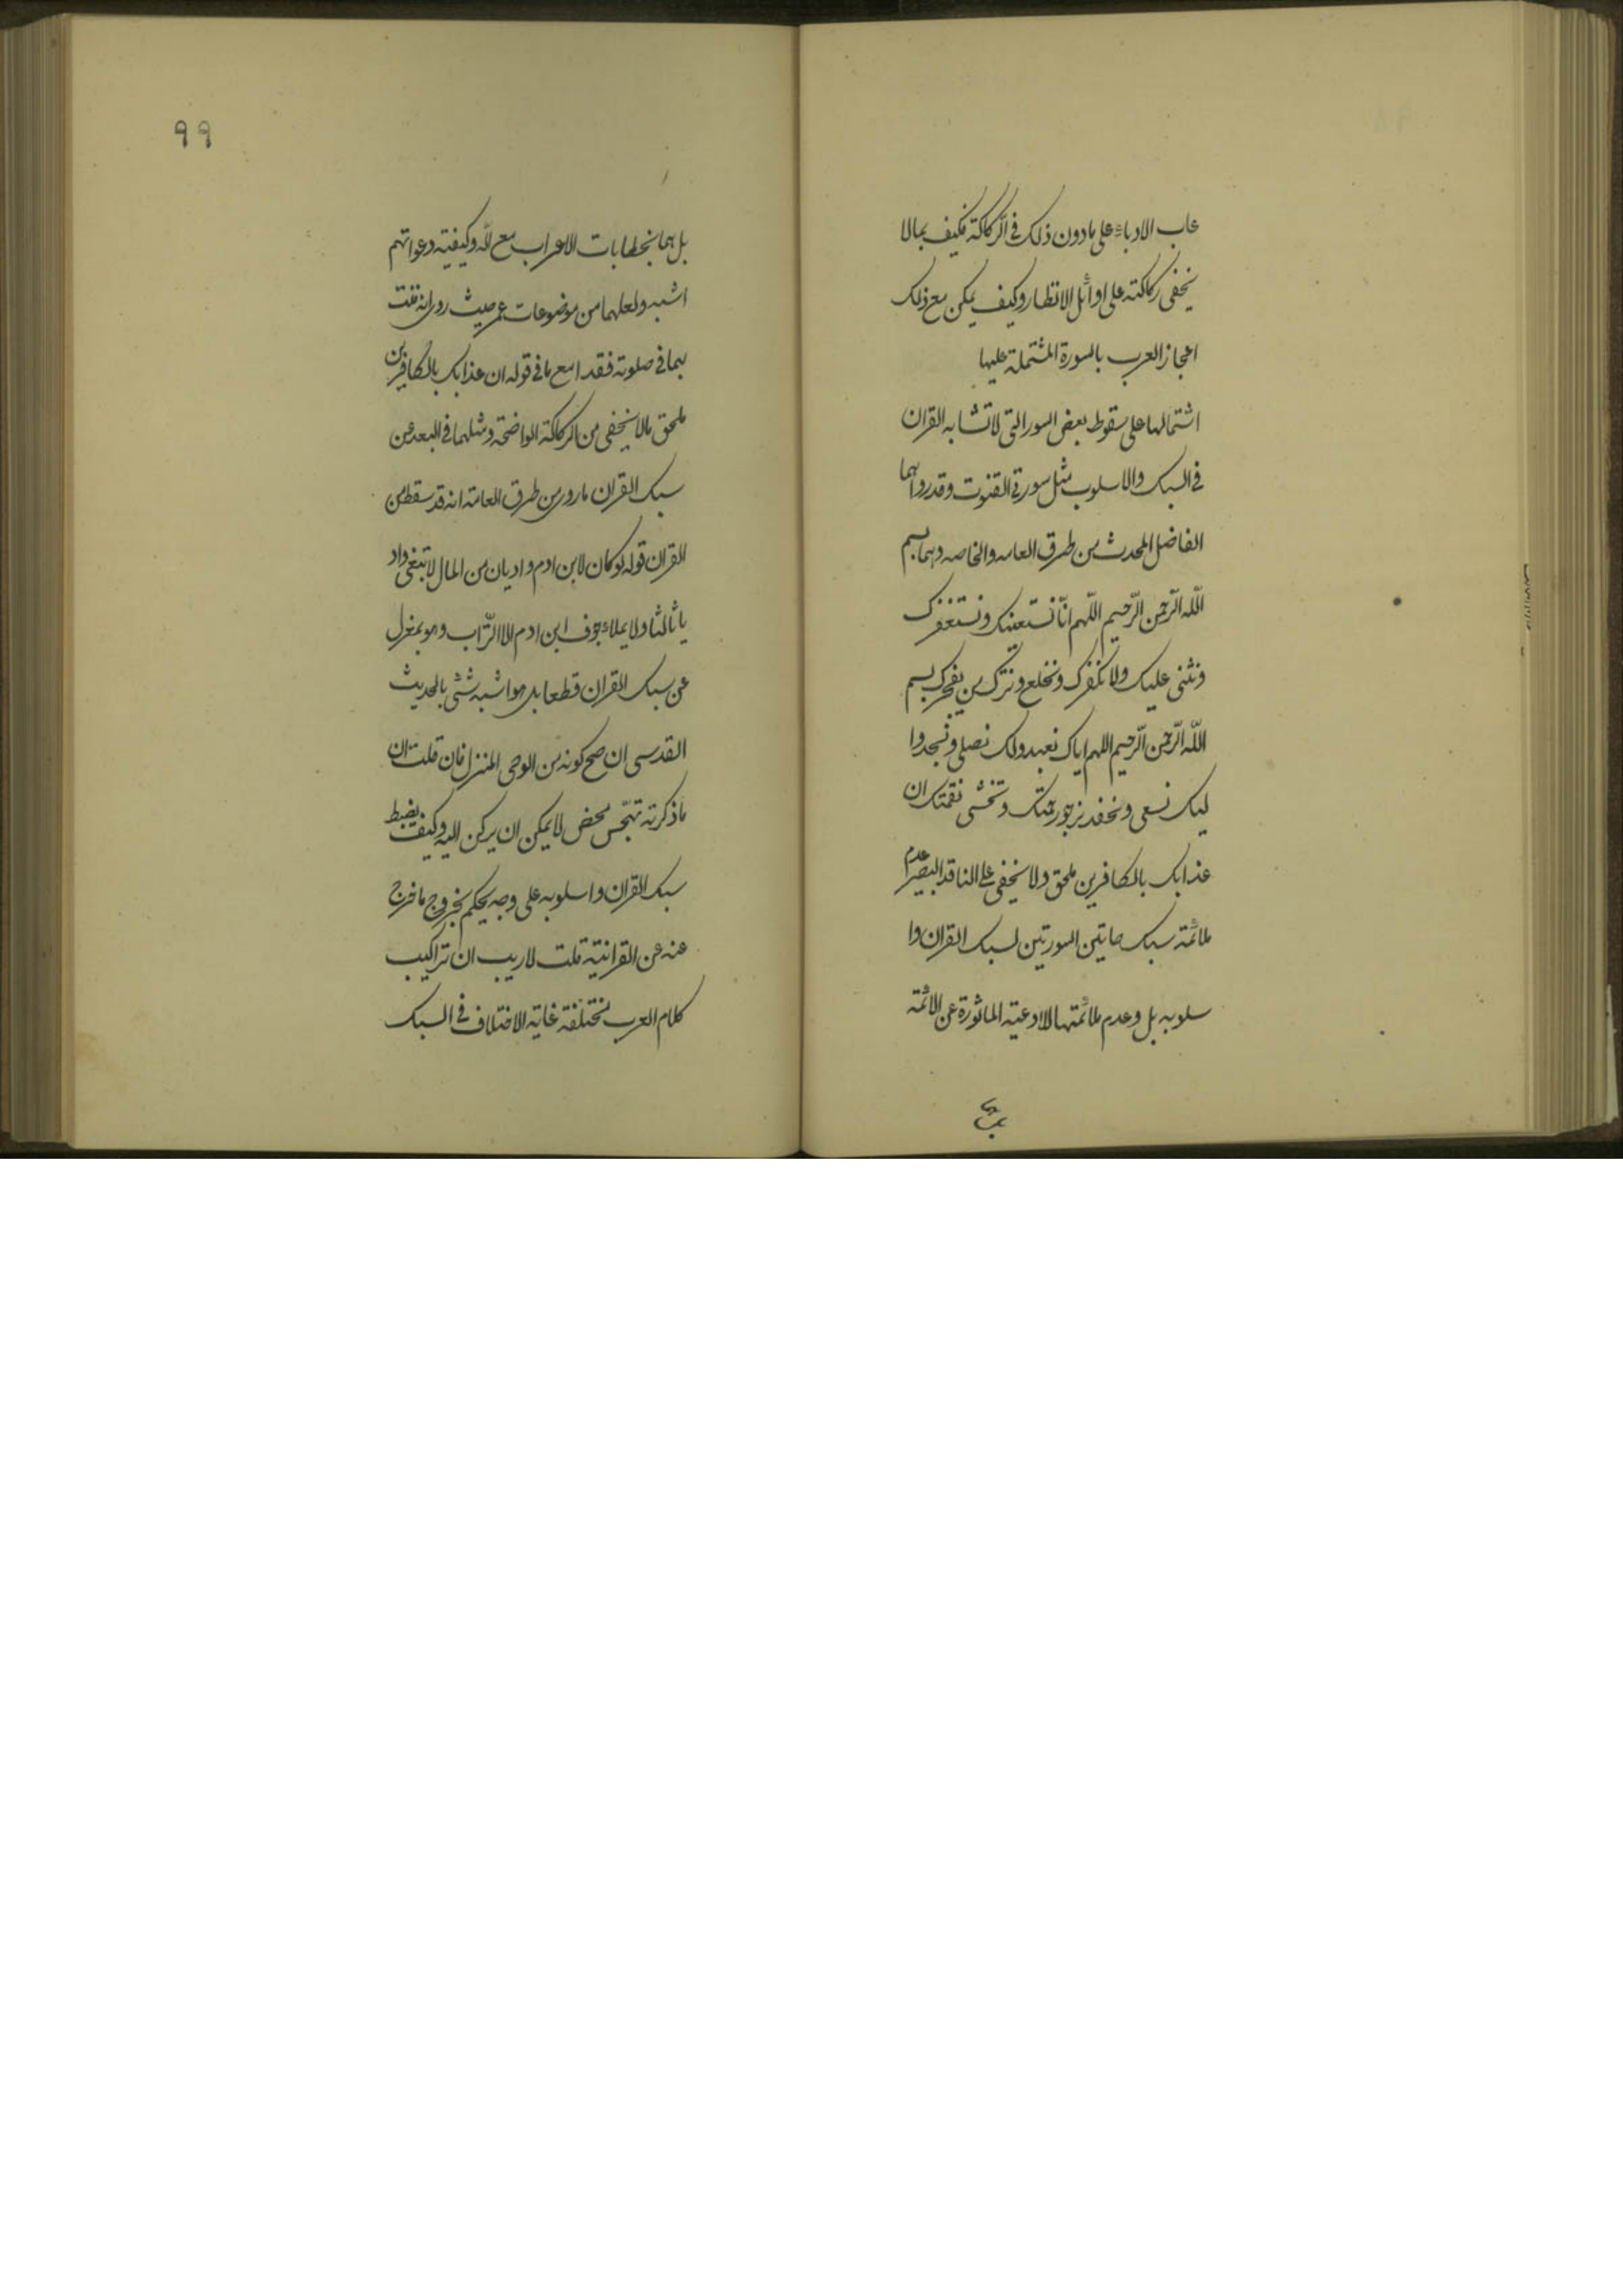 عاب الادباء على مادون ذلك فى الركاكة فكيف بمالا
يخفى ركاكته على اوائل الانظار وكيف يمكن مع ذلك
اعجاز العرب بالسورة المشتملة عليها
اشتمالها على سقوط بعض السور التى لا تشابه القران
فى السبك والاسلوب مثل سورتى القنوت وقد رواهما
الفاضل المحدث من طرق العامه والخاصه وهما بسم
اللّه الرّحمن الرّحيم اللّهم انّا نستعينك ونستغفرك
ونثنى عليك ولا نكفرك ونخلع ونترك من يفجرك بسم
اللّه الرّحمن الرّحيم اللهم اياك نعبد ولك نصلى ونسجد وا
ليك نسعى ونحفد نرجو رحمتك ونخشى نقمتك ان
عذابك بالكافرين ملحق ولا يخفى على الناقد البصير عدم
ملائمة سبك هاتين السورتين لسبك القران وا
سلوبه بل وعدم ملائمتها لادعية الماثورة عن الائمة
بل هما
٩٩
بل هما بخطابات الاعراب مع اللّه وكيفية دعواتهم
اشبه ولعلهما من موضوعات عمر حيث روى انه قنت
بهما فى صلوته فقد اسمع ما فى قوله ان عذابك بالكافرين
ملحق مالا يخفى من الركاكة الواضحة ومثلهما فى البعد عن
سبك القران ماروى من طرق العامة انه قد سقط من
القران قوله لو كان لابن ادم واديان من المال لابتغى واد
يا ثالثا ولا يملاء جوف ابن ادم الا التّراب وهو بمعزل
عن سبك القران قطعا بل هو اشبه شئى بالحديث
القدسى ان صح كونه من الوحى المنزل فان قلت ان
ماذكرته تهجّس محض لا يمكن ان يركن اليه وكيف يضبط
سبك القران واسلوبه على وجه يحكم بخروج ما خرج
عنه عن القرانية قلت لا ريب ان تراكيب
كلام العرب مختلفة غاية الاختلاف فى السبك